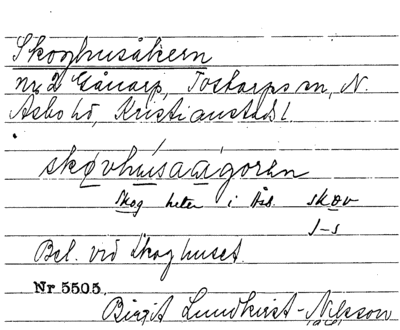 Skoghusåkern
nr 2 Gånarp, Tostarps sn, N.
Åsbo hd, Kristianstads l.
skøvhusaagoren
Skog heter i Åsb. skøv
J-s
Bel. vid Skoghuset.
Nr 5505.
Birgit Lundkvist-Nilsson